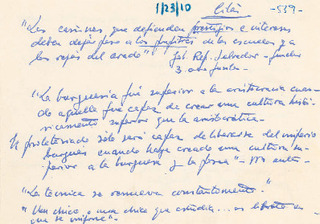 1/23/10 Citas -539-
"Los casinos, que defiendan prestigios e intereses
deben dejar paso a los pupitres de las escuelas y a
las rejas del arado"
3.
"La burguesía fué superior a la aristocracia cuan-
do aquella fué capaz de crear una cultura histó-
ricamente superior que la aristocrática.
El proletariado sólo será capaz de liberarse del imperio
burgués cuando haya creado una cultura su-
perior a la burguesa y la posea" -
"La técnica se renueva constantemente."
"Un chico o una chica que estudia... es
que se